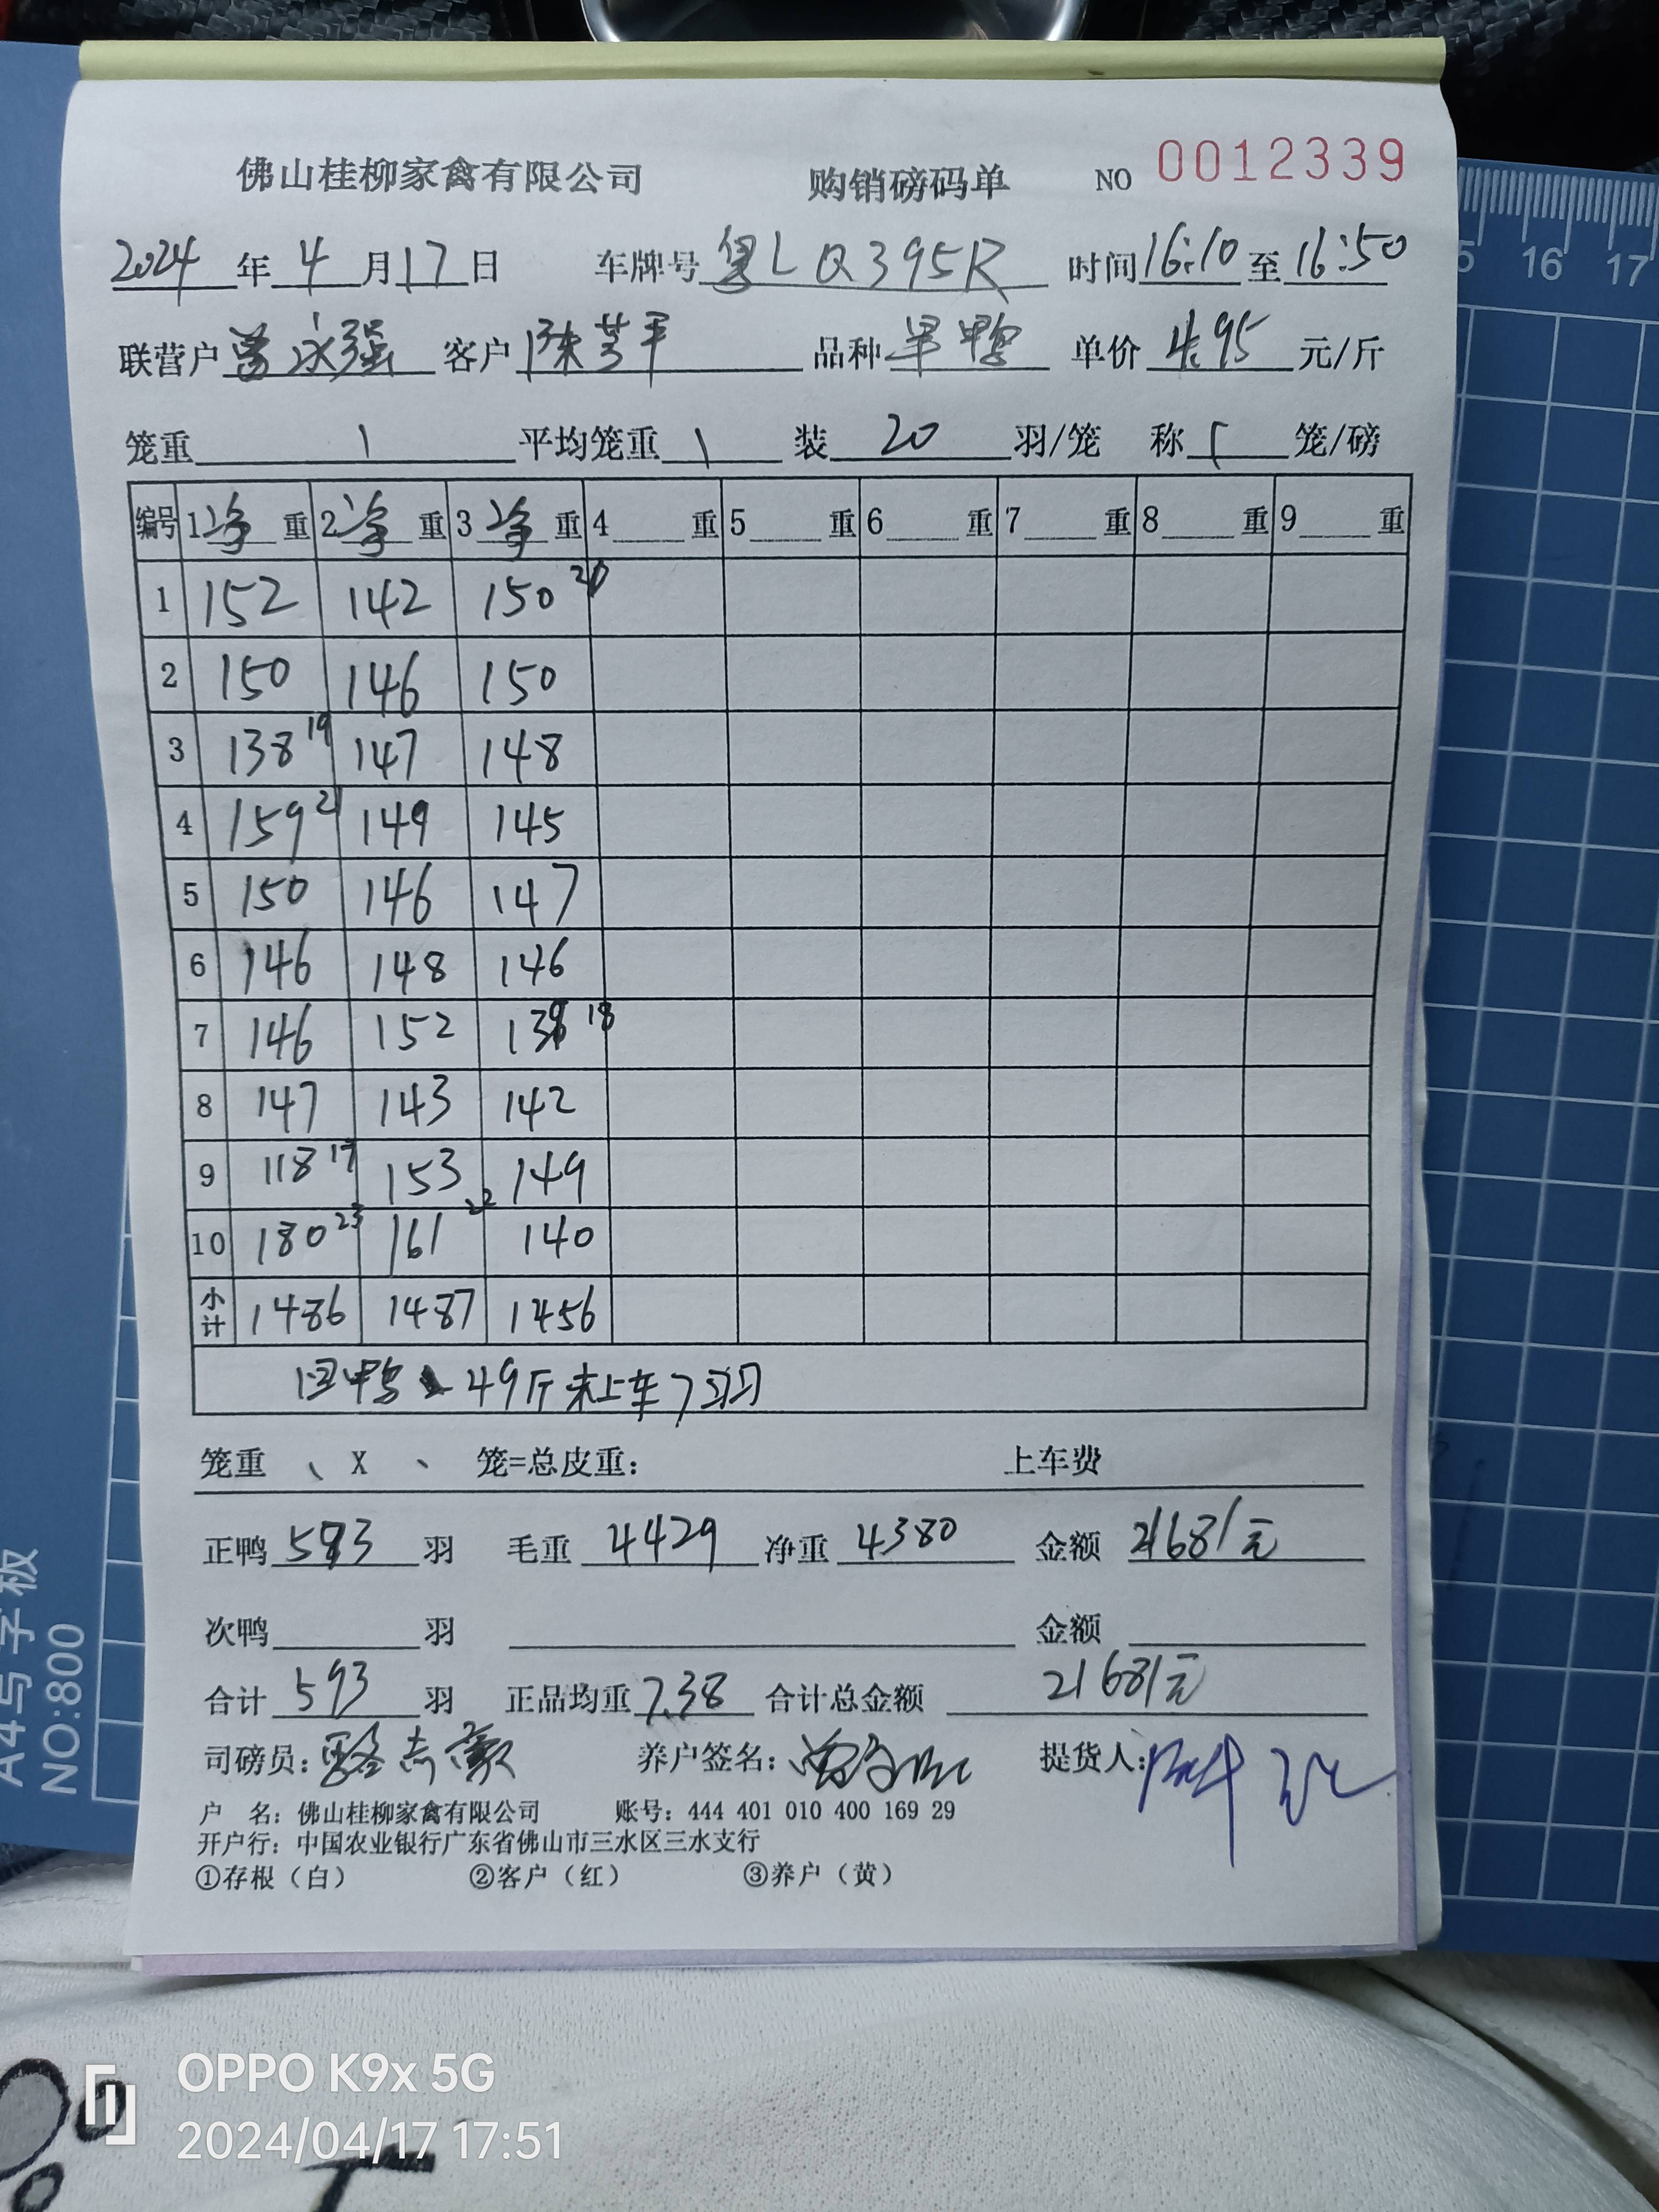 佛山桂柳家禽有限公司 购销磅码单 NO 0012339
2024 年 4 月 17 日 车牌号 粤L Q395R 时间 16:10 至 16:50
联营户 曾永强 客户 陈芳平 品种 旱鸭 单价 4.95 元/斤
笼重 平均笼重 装 20 羽/笼 称 笼/磅
编号 1 净 重 2 净 重 3 净 重 4 重 5 重 6 重 7 重 8 重 9 重
1 152 142 150 20
2 150 146 150
3 138 19 147 148
4 159 21 149 145
5 150 146 147
6 146 148 146
7 146 152 139 18
8 147 143 142
9 118 17 153 149
10 180 23 161 22 140
小计 1486 1487 1456
回鸭 49斤未上车7羽
笼重 、 X 、 笼=总皮重: 上车费
正鸭 593 羽 毛重 4429 净重 4380 金额 21681元
次鸭 羽 金额
合计 593 羽 正品均重 7.38 合计总金额 21681元
司磅员: 骆志豪 养户签名: 提货人:
户 名: 佛山桂柳家禽有限公司 账号: 444 401 010 400 169 29
开户行: 中国农业银行广东省佛山市三水区三水支行
①存根（白） ②客户（红） ③养户（黄）
15 16 17
A4写字板
NO:800
OPPO K9x 5G
2024/04/17 17:51